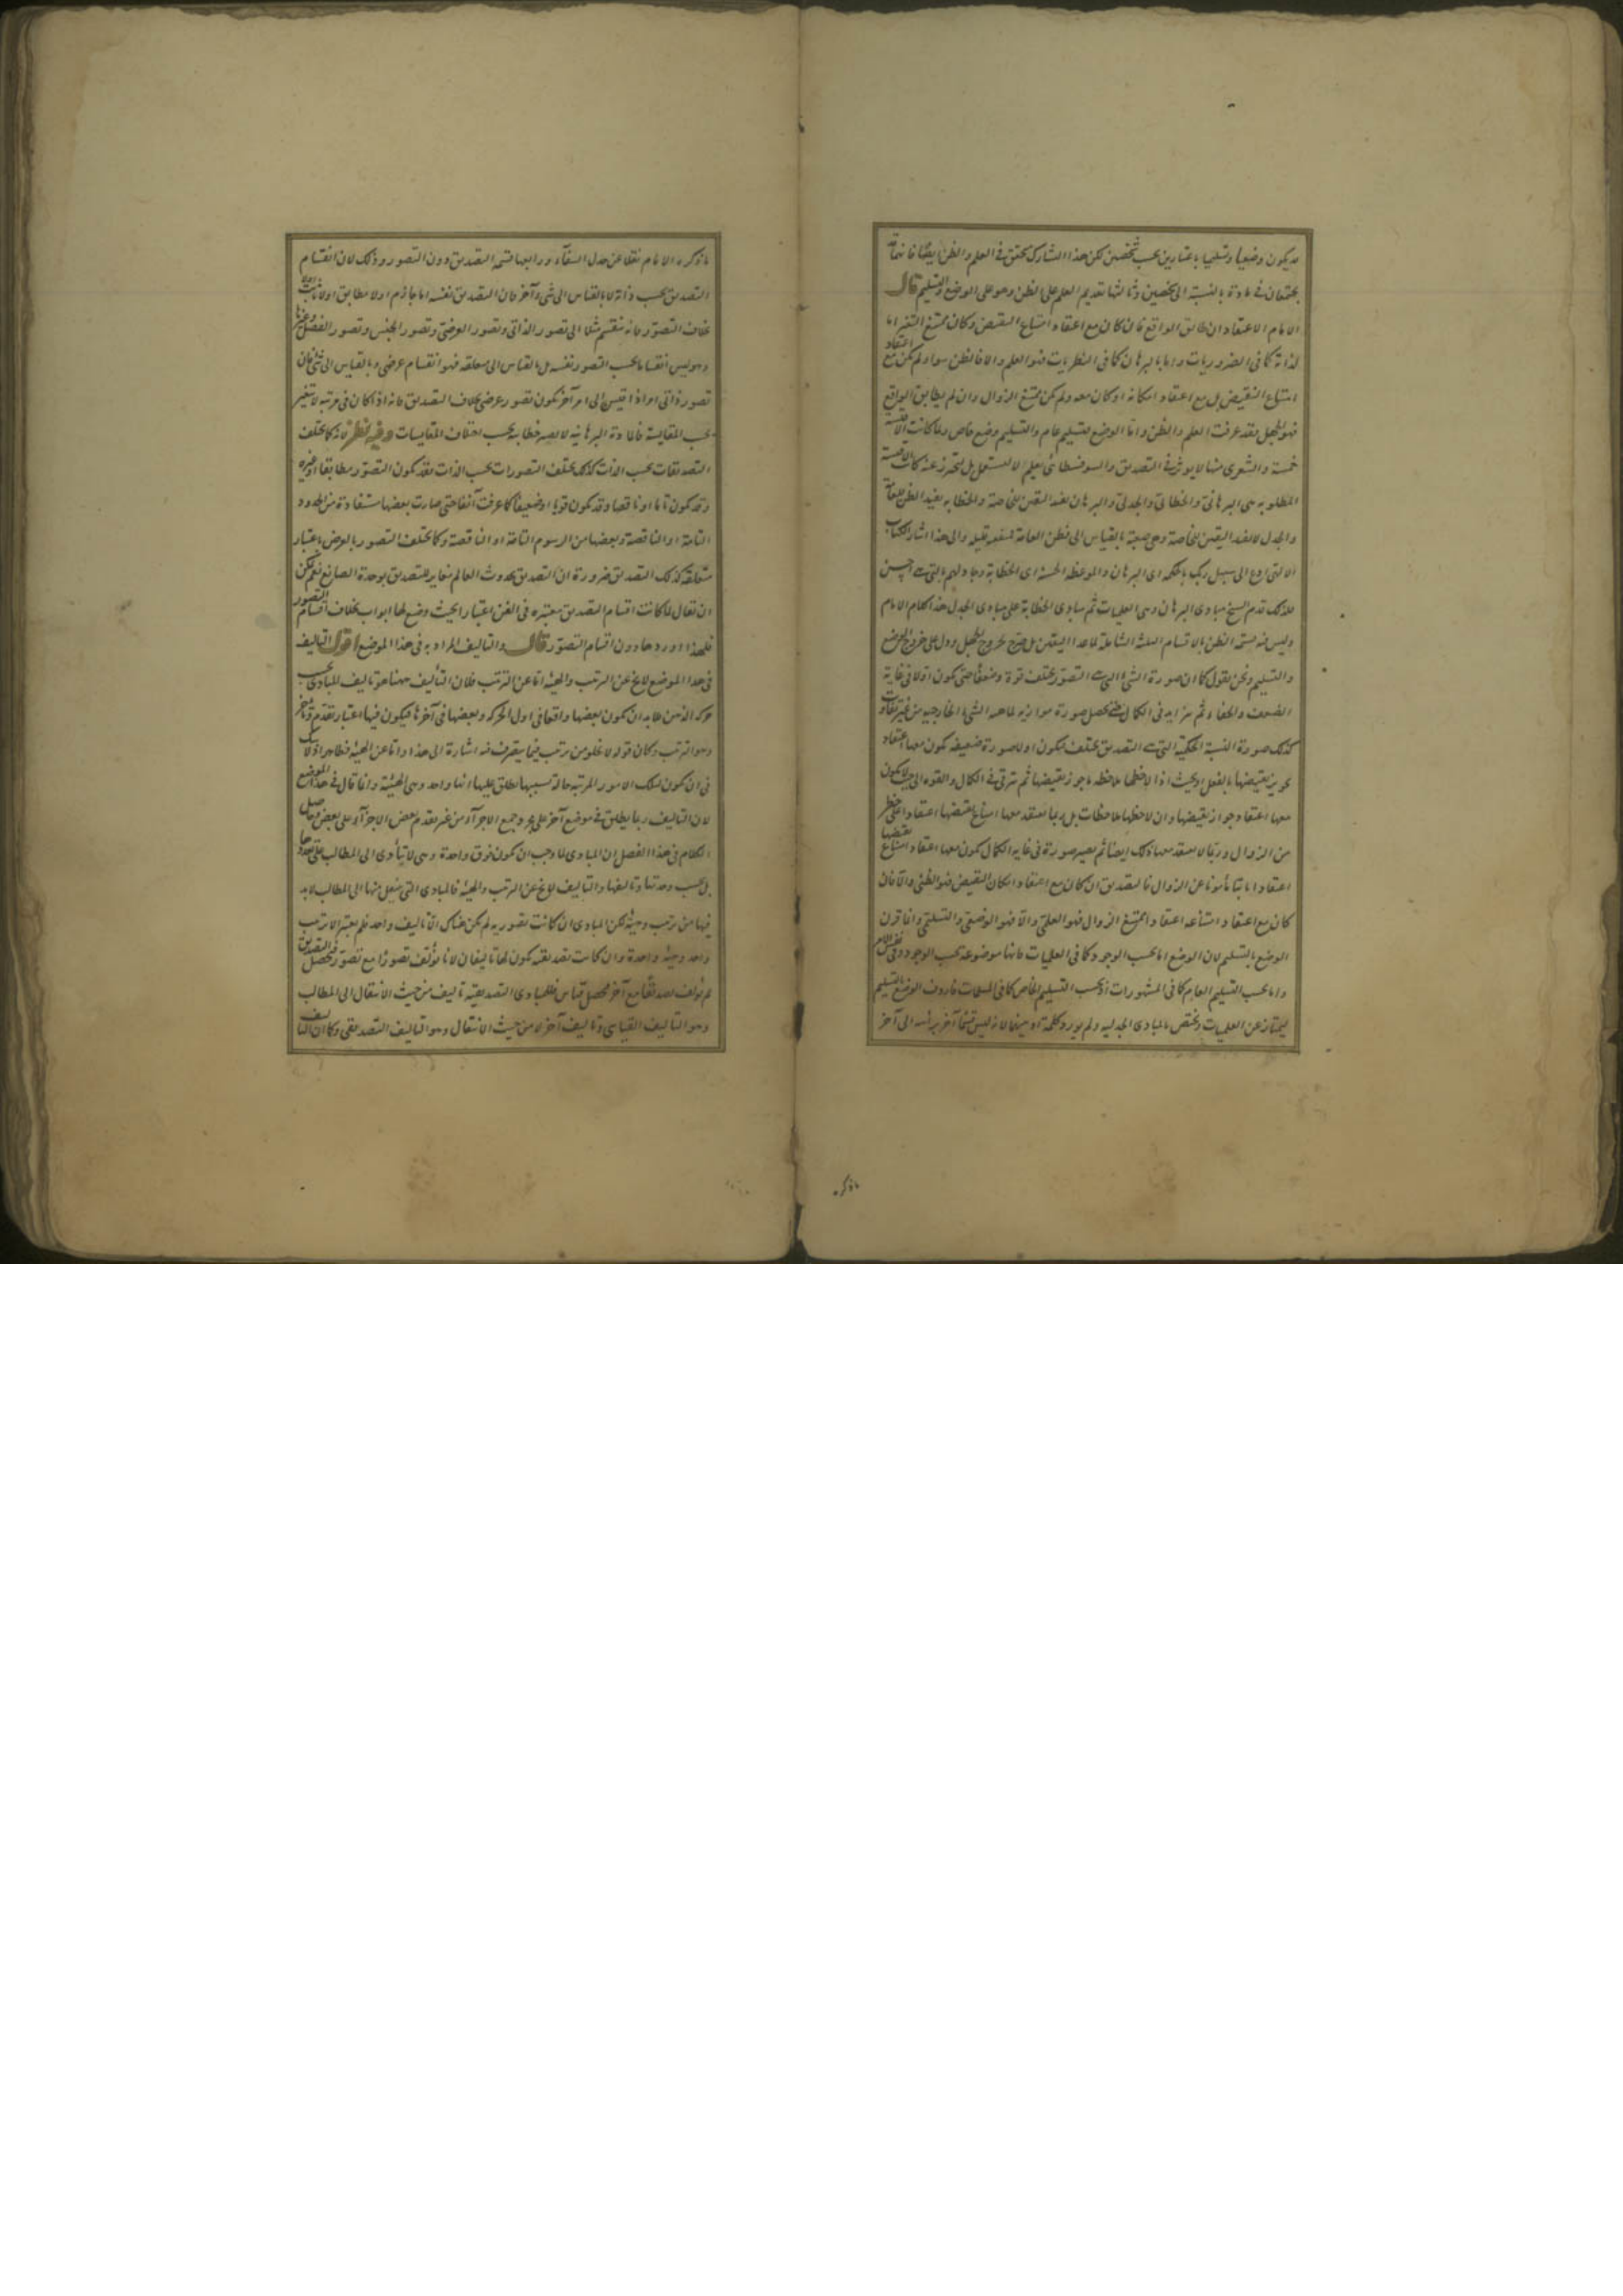 قد يكون وضعيا وتسليميا باعتبارين بحسب شخصين لكن هذا التشارك تحقق في العلم والظن ايضا فانهما قد
يجتمعان في مادة بالنسبة الى شخصين وثالثها تقديم العلم على الظن وهو على الوضع والتسليم قال
الامام الاعتقاد ان طابق الواقع فان كان مع اعتقاد امتناع النقيض وكان ممتنع التغير اما
لذاته كما في الضروريات واما بالبرهان كما في النظريات فهو العلم والا فالظن سواء لم يكن مع اعتقاد
امتناع النقيض بل مع اعتقاد امكانه او كان معه ولم يكن ممتنع الزوال وان لم يطابق الواقع
فهو الجهل فقد عرفت العلم والظن واما الوضع فتسليم عام والتسليم وضع خاص ولما كانت الاقيسة
خمسة والشعرى منها لا يوثر في التصديق والسوفسطائى لا يستعمل بل يتحرز عنه كانت الاقيسة
المطلوبة هي البرهانى والخطابى والجدلى والبرهان يفيد اليقين للخاصة والخطابة يفيد الظن للعامة
والجدل لا يفيد اليقين للخاصة وهي صعبة بالقياس الى فطن العامة فمنفعته قليلة والى هذا اشار الكتاب
الالهى ادع الى سبيل ربك بالحكمة اى البرهان والموعظة الحسنة اى الخطابة وجادلهم بالتى هي احسن
فلذلك قدم الشيخ مبادى البرهان وهي العلميات ثم مبادى الخطابة على مبادى الجدل هذا كلام الامام
وليس فيه قسمة الظن بالاقسام الثلثة الشاملة لما عدا اليقين بل صرح بخروج الجهل ودل على خروج الوضع
والتسليم ونحن نقول كما ان صورة الشئ التى هي التصور يختلف قوة وضعفا حتى يكون اولا في غاية
الضعف والخفاء ثم يتزايد في الكمال حتى يحصل صورة موازية لماهية الشئ الخارجية من غير تفاوت
كذلك صورة النسبة الحكمية التى هي التصديق يختلف فيكون اولا صورة ضعيفة يكون معها اعتقاد
تجويز نقيضها بالفعل او بحيث اذا لاحظها ملاحظ ما جوز نقيضها ثم يترقى في الكمال والقوة الى حيث لا يكون
معها اعتقاد جواز نقيضها وان لاحظها ملاحظات بل ربما يعتقد معها امتناع نقيضها اعتقادا على خطر
من الزوال وربما لا يعتقد معها ذلك ايضا ثم يصير صورة في غاية الكمال يكون معها اعتقاد امتناع نقيضها
اعتقادا ثابتا مأمونا عن الزوال فالتصديق ان كان مع اعتقاد امكان النقيض فهو الظنى والا فان
كان مع اعتقاد امتناعه اعتقادا ممتنع الزوال فهو العلمى والا فهو الوضعى والتسليمى وانما قرن
الوضع بالتسليم لان الوضع اما بحسب الوجود كما في العلميات فانها موضوعة بحسب الوجود وفى نفس الامر
واما بحسب التسليم العام كما في المشهورات او بحسب التسليم الخاص كما في المسلمات فاردف الوضع بالتسليم
ليمتاز عن العلميات ويختص بالمبادى الجدلية ولم يورد كلمة او بينهما لانه ليس قسما آخر برأسه الى آخر
ما ذكره
ما ذكره الامام نقلا عن جدل الشفاء ورابعها قسمة التصديق دون التصور وذلك لان انقسام
التصديق بحسب ذاته لا بالقياس الى شئ آخر فان التصديق نفسه اما جازم او لا مطابق او لا ثابت او لا
بخلاف التصور فانه ينقسم مثلا الى تصور الذاتى وتصور العرضى وتصور الجنس وتصور الفصل وغيرها
وهو ليس انقساما بحسب التصور نفسه بل بالقياس الى متعلقه فهو انقسام عرضى وبالقياس الى شئ فان
تصور ذاتى امر اذا قيس الى امر آخر يكون تصور عرضى بخلاف التصديق فانه اذا كان في مرتبة لا يتغير
بحسب المقايسة فالمادة البرهانية لا يصير خطابية بحسب اختلاف المقايسات وفيه نظر لانه كما يختلف
التصديقات بحسب الذات كذلك يختلف التصورات بحسب الذات فقد يكون التصور مطابقا او غيره
وقد يكون تاما او ناقصا وقد يكون قويا او ضعيفا كما عرفت آنفا حتى صارت بعضها مستفادة من الحدود
التامة او الناقصة وبعضها من الرسوم التامة او الناقصة وكما يختلف التصور بالعرض باعتبار
متعلقه كذلك التصديق ضرورة ان التصديق بحدوث العالم مغاير للتصديق بوحدة الصانع نعم يمكن
ان يقال لما كانت اقسام التصديق معتبرة في الفن اعتبارا بحيث وضع لها ابواب بخلاف اقسام التصور
فلهذا اوردها دون اقسام التصور قال والتاليف المراد به في هذا الموضع اقول التاليف
في هذا الموضع لا يخ عن الترتيب والهيئة اما عن الترتيب فلان التأليف ههنا هو تاليف للمبادى بحسب
حركة الذهن فلا بد ان يكون بعضها واقعا في اول الحركة وبعضها في آخرها فيكون فيها اعتبار تقدم وتأخر
وهو الترتيب وكان قوله لا يخلو من ترتيب فيما يتصرف فيه اشارة الى هذا واما عن الهيئة فظاهر اذ لا شك
في ان يكون لتلك الامور المرتبة حالة بسببها يطلق عليها انها واحد وهي الهيئة وانما قال في هذا الموضع
لان التاليف ربما يطلق في موضع آخر على جمع الاجزآء من غير تقدم بعض الاجزآء على بعض وحاصل
الكلام في هذا الفصل ان المبادى لما وجب ان يكون فوق واحدة وهي لا يتأدى الى المطالب على تعددها
بل بحسب وحدتها وتاليفها والتاليف لا يخ عن الترتيب والهيئة فالمبادى التى ينتقل منها الى المطالب لا بد
فيها من ترتيب وهيئة لكن المبادى ان كانت تصورية لم يكن هناك الا تاليف واحد فلم يعتبر الا ترتيب
واحد وهيئة واحدة وان كانت تصديقية يكون لها تاليفان لانا نؤلف تصورا مع تصور فيحصل التصديق
ثم نؤلف تصديقا مع آخر فيحصل قياس فللمبادى التصديقية تاليف من حيث الانتقال الى المطالب
وهو التاليف القياسى وتاليف آخر لا من حيث الانتقال وهو التاليف التصديقى وكما ان التاليف